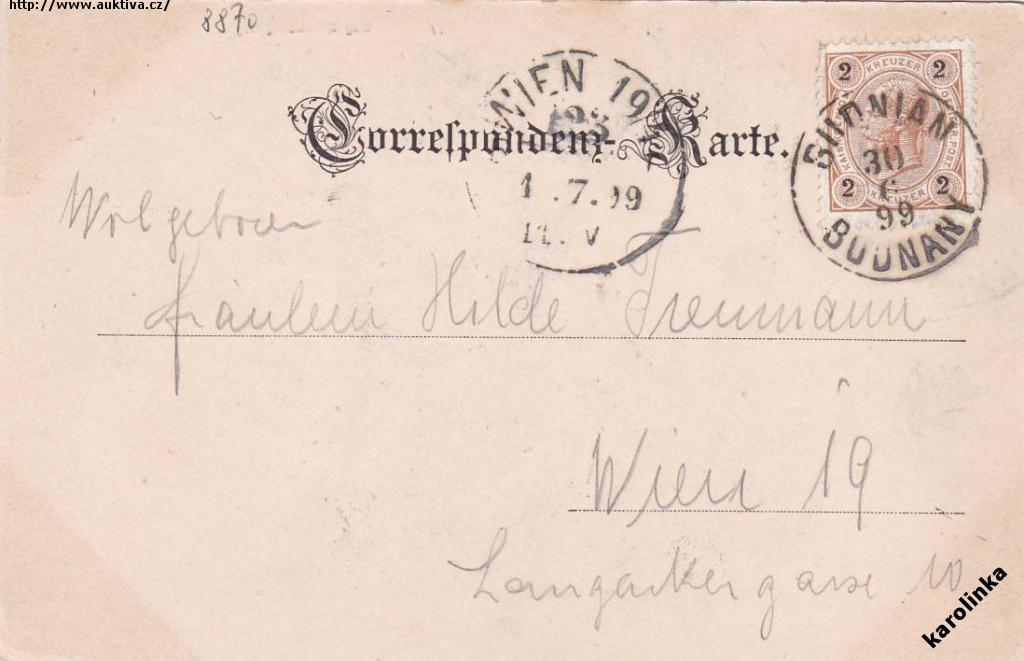 http://www.auktiva.cz/
8870
Correspondenz-Karte.
WIEN 19
1.7.99
11.V
2 KREUZER 2
2 KREUZER 2
BUDNIAN
30
6
99
BUDNANY
Wolgeboren
Fräulein Hilde Freumann
Wien 19
Langackergasse 10
karolinka